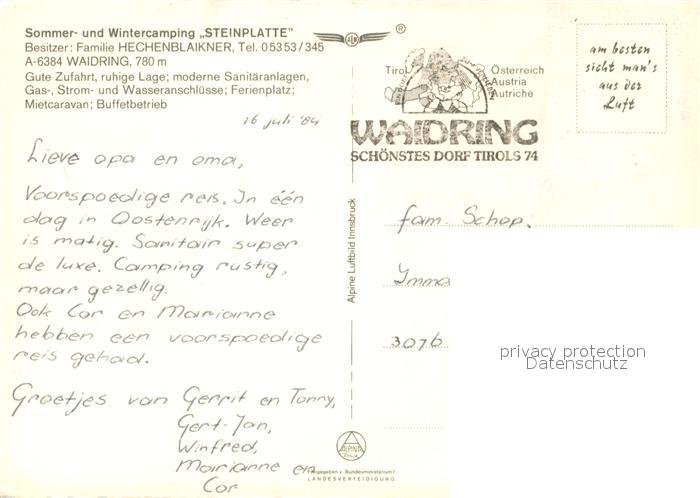 Sommer- und Wintercamping „STEINPLATTE”
Besitzer: Familie HECHENBLAIKNER, Tel. 05353/345
A-6384 WAIDRING, 780 m
Gute Zufahrt, ruhige Lage; moderne Sanitäranlagen,
Gas-, Strom- und Wasseranschlüsse; Ferienplatz;
Mietcaravan; Buffetbetrieb
16 juli '84
Lieve opa en oma,
Voorspoedige reis. In één
dag in Oostenrijk. Weer
is matig. Sanitair super
de luxe. Camping rustig,
maar gezellig.
Ook Cor en Marianne
hebben een voorspoedige
reis gehad.
Groetjes van Gerrit en Tonny,
Gert-Jan,
Winfred,
Marianne en
Cor
®
Tirol
Österreich
Austria
Autriche
WAIDRING
SCHÖNSTES DORF TIROLS 74
am besten
sieht man's
aus der
Luft
Alpine Luftbild Innsbruck
fam. Schop.
3076
privacy protection
Datenschutz
ALPINE
Freigegeben v. Bundesministerium f.
LANDESVERTEIDIGUNG